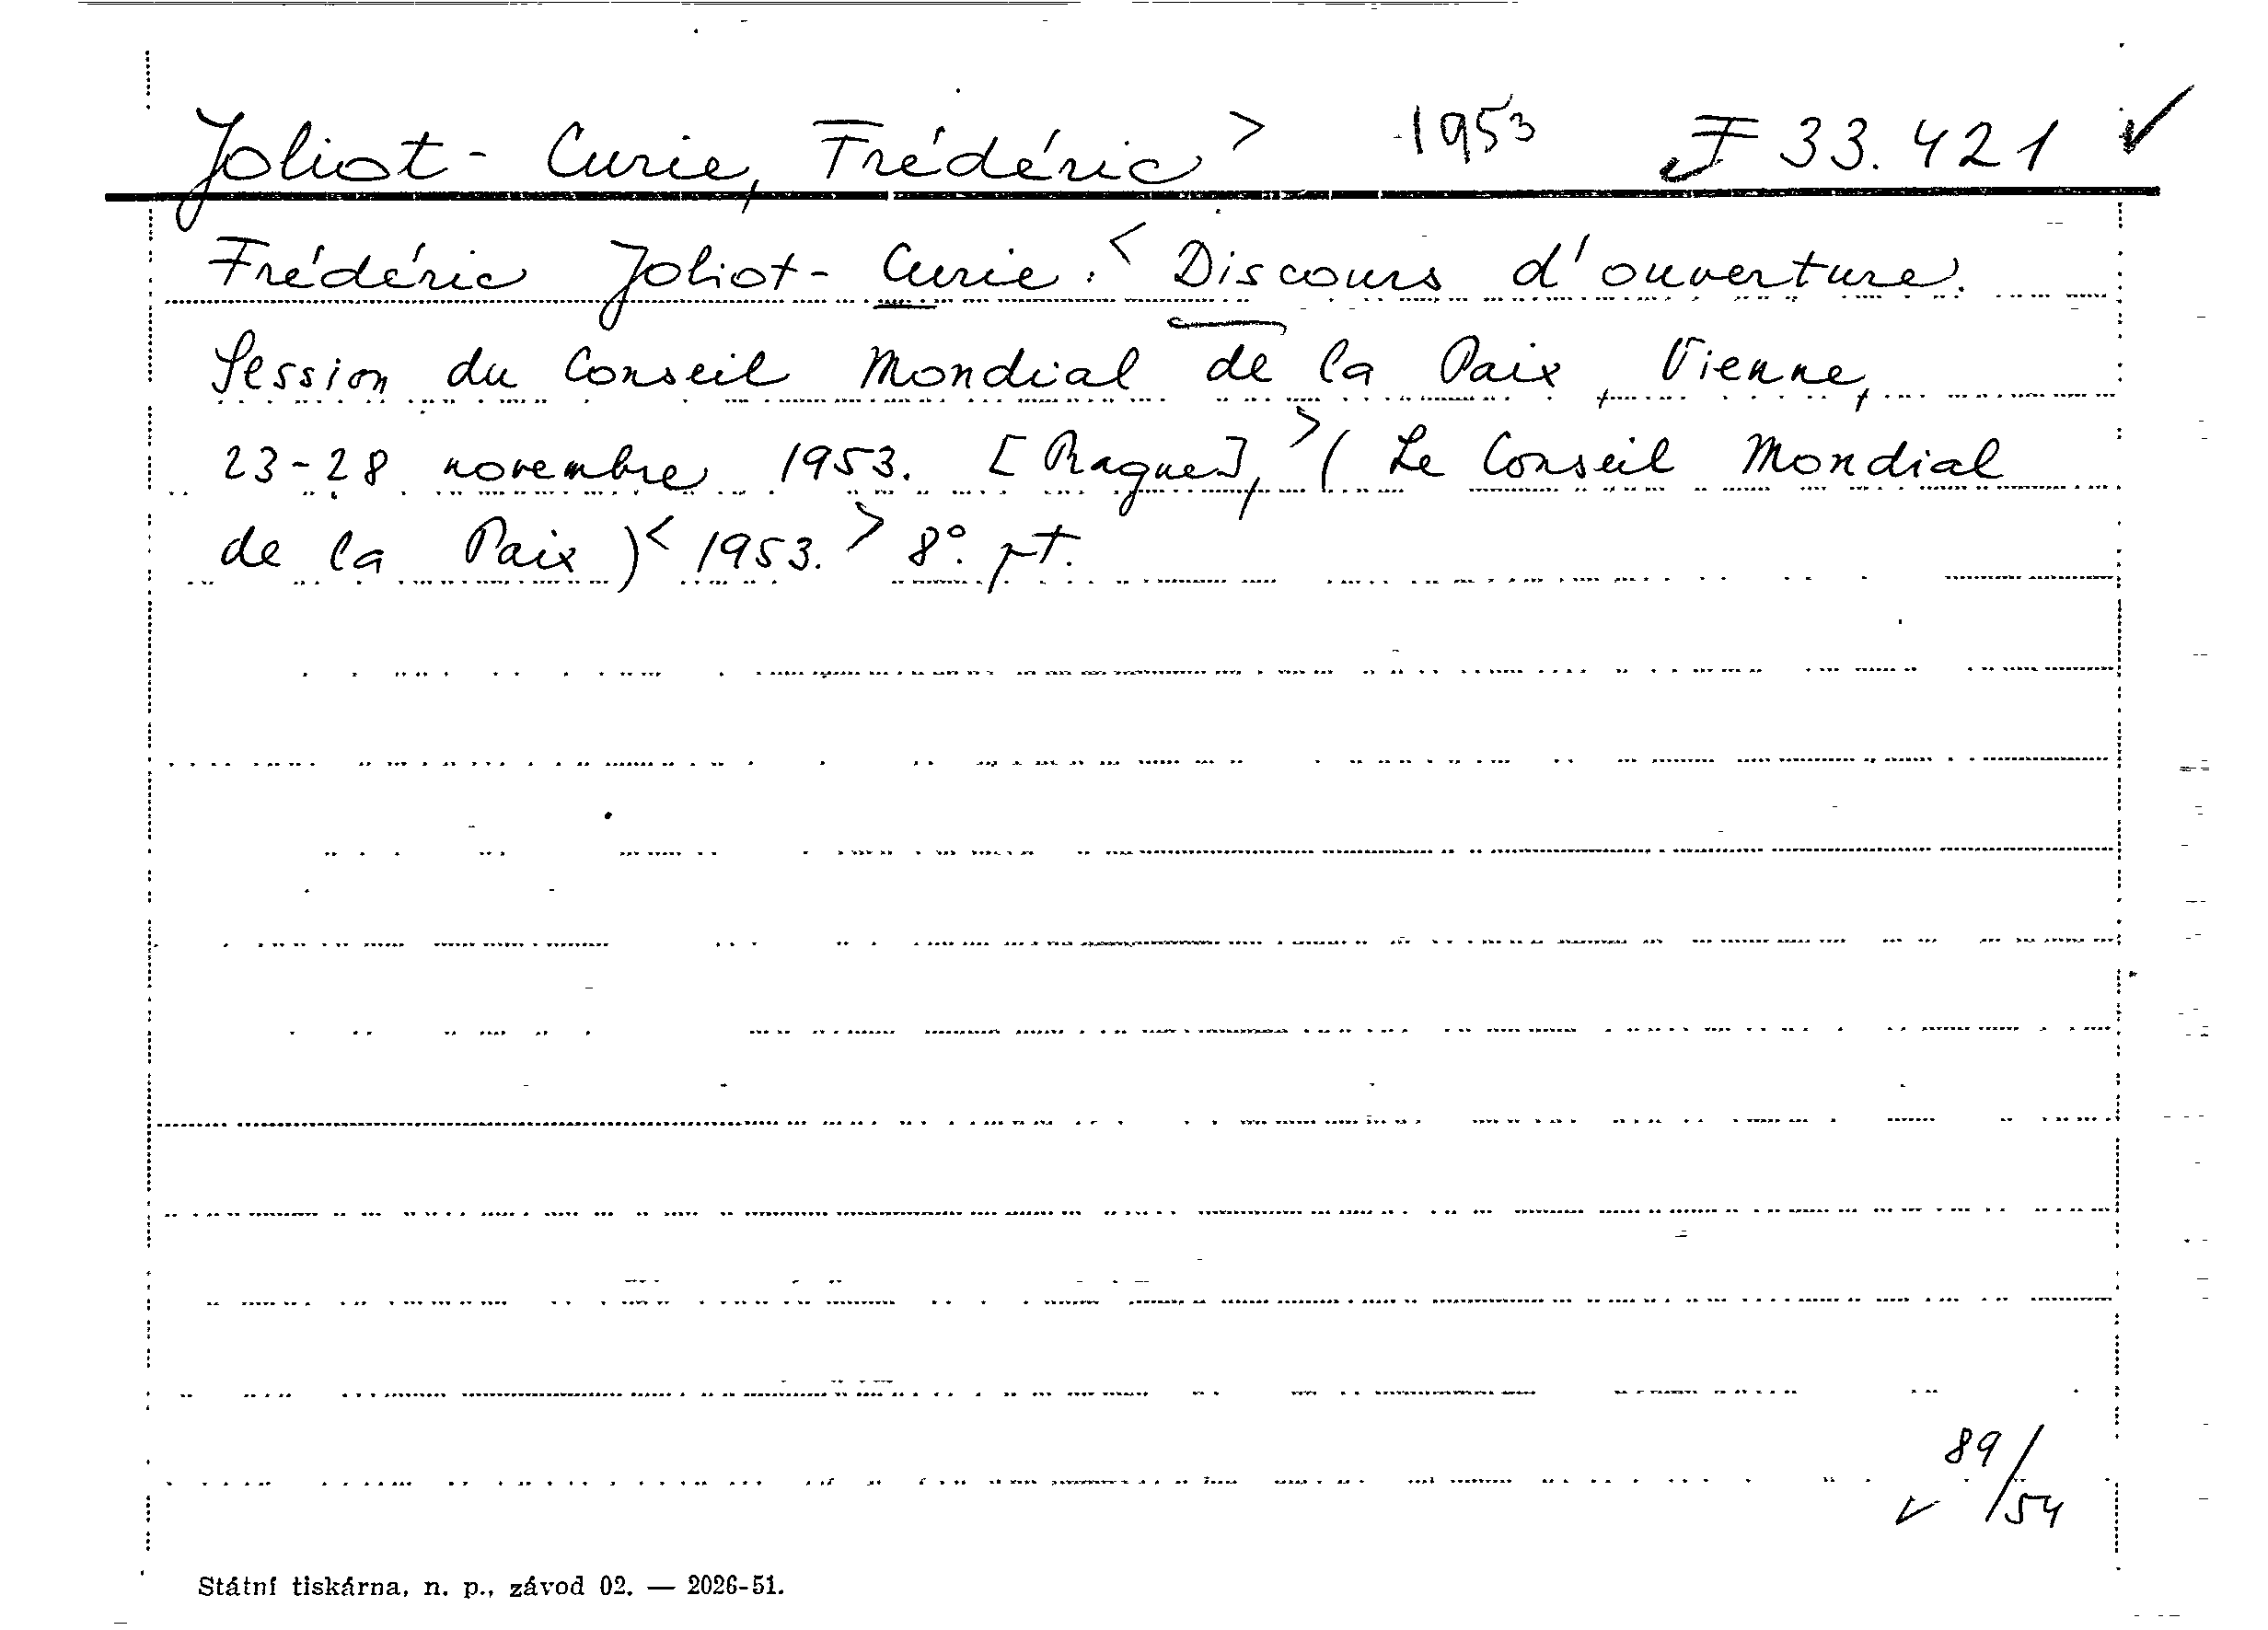 Joliot-Curie, Frédéric> 1953 F 33.421 ✓
Frédéric Joliot-Curie:< Discours d'ouverture.
Session du Conseil Mondial de la Paix, Vienne,
23-28 novembre 1953. [Prague],> (Le Conseil Mondial
de la Paix)< 1953.> 8°. pt.
89/54
✓
Státní tiskárna, n. p., závod 02. — 2026-51.